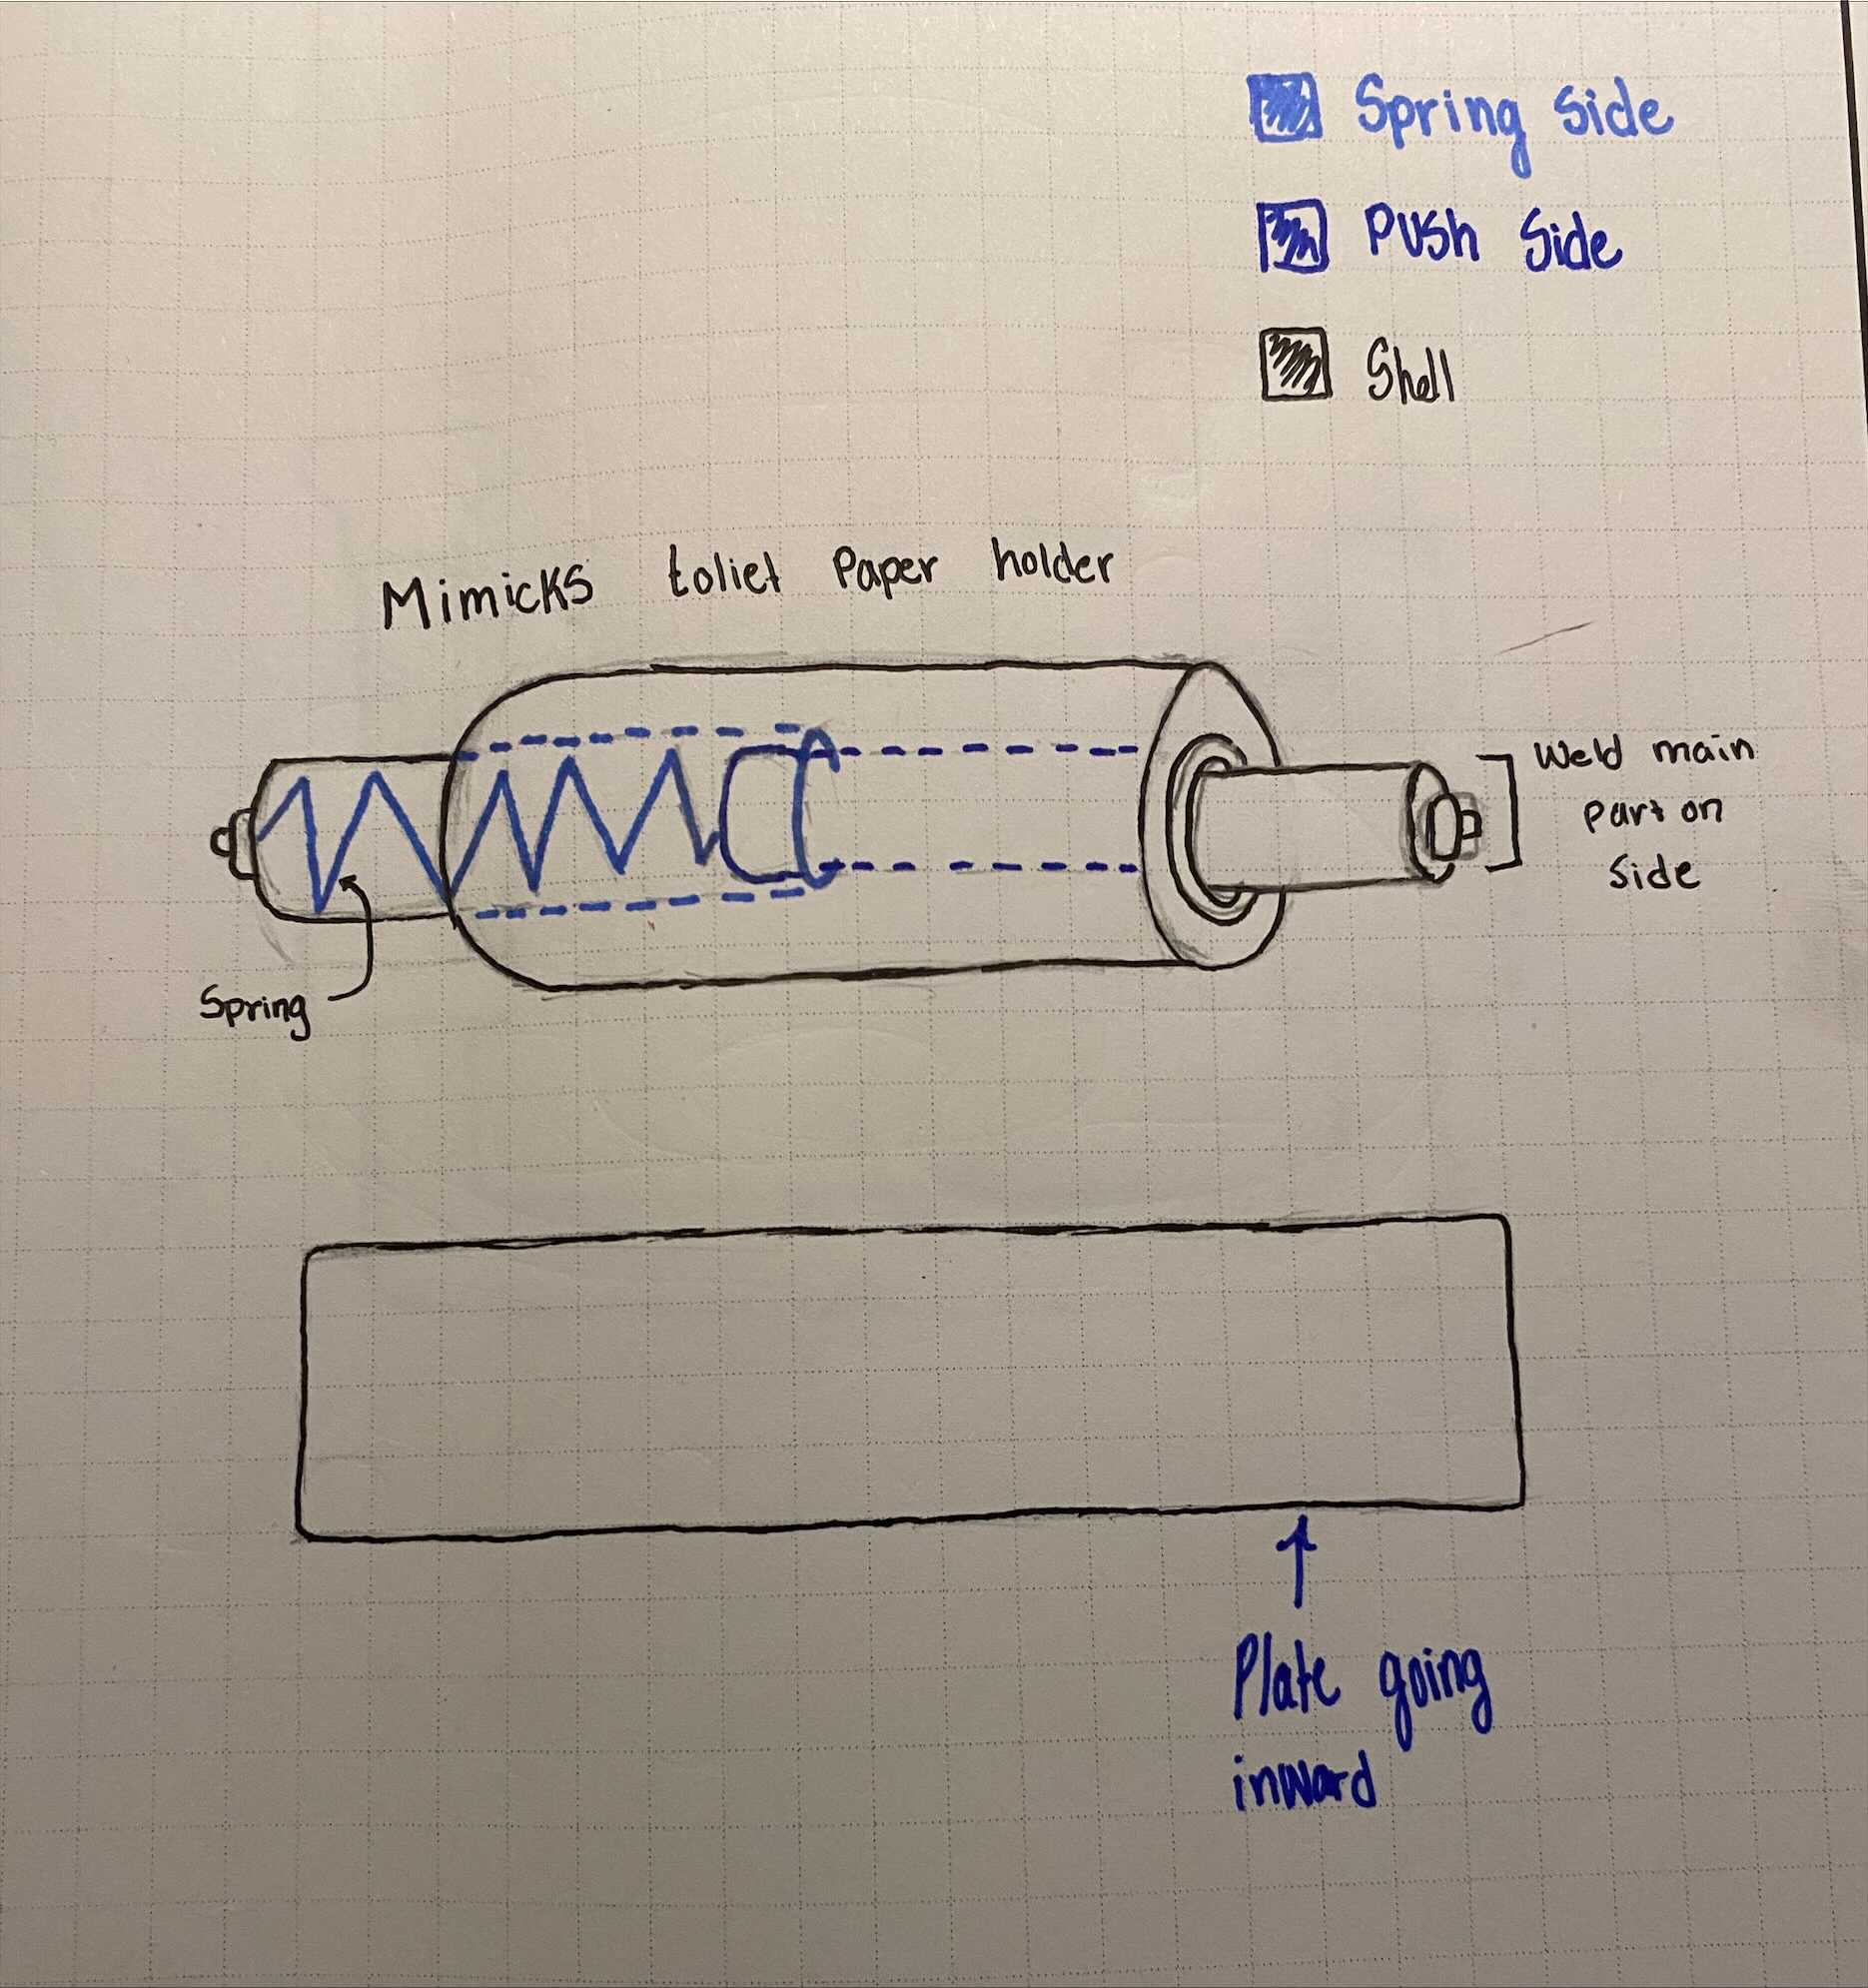 Spring Side
Push Side
Shell
Mimicks toliet Paper holder
Weld main
part on
side
Spring
Plate going
inward